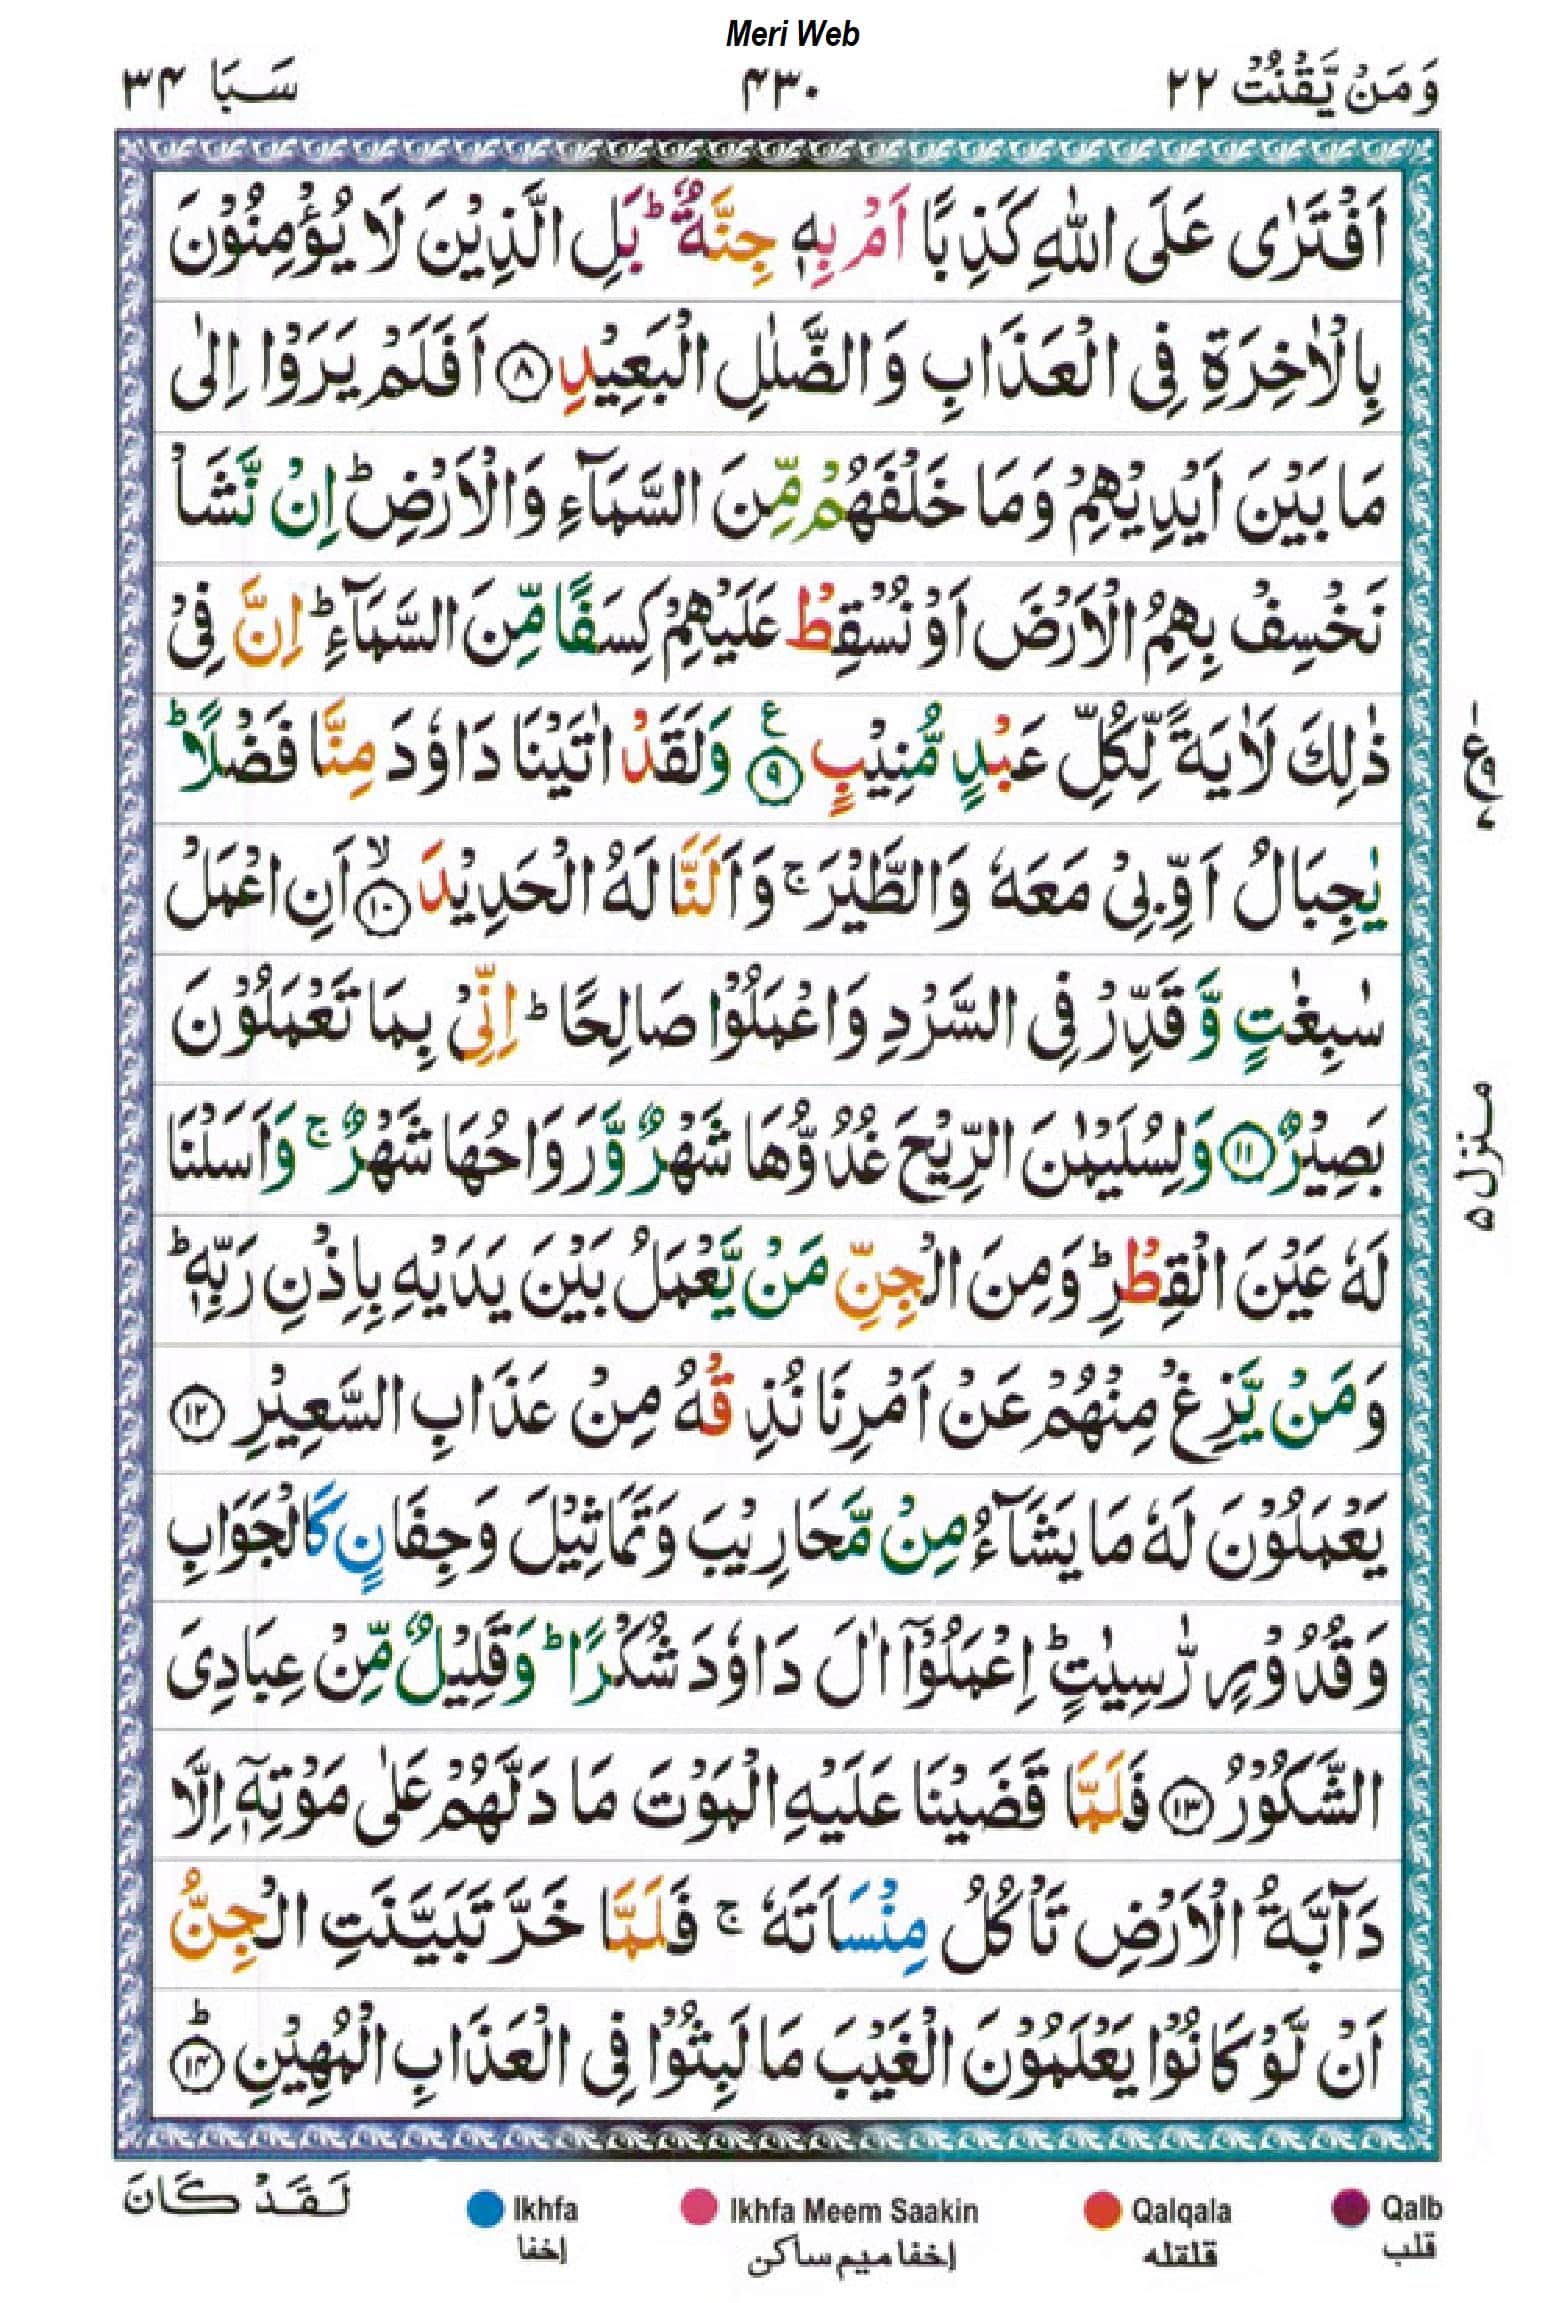 Meri Web
وَمَنْ يَّقْنُتْ ٢٢
٤٣٠
سَبَا ٣٤
اَفْتَرٰى عَلَى اللّٰهِ كَذِبًا اَمْ بِهٖ جِنَّةٌ ؕ بَلِ الَّذِيْنَ لَا يُؤْمِنُوْنَ
بِالْاٰخِرَةِ فِى الْعَذَابِ وَالضَّلٰلِ الْبَعِيْدِ ٨ اَفَلَمْ يَرَوْا اِلٰى
مَا بَيْنَ اَيْدِيْهِمْ وَمَا خَلْفَهُمْ مِّنَ السَّمَآءِ وَالْاَرْضِ ؕ اِنْ نَّشَاْ
نَخْسِفْ بِهِمُ الْاَرْضَ اَوْ نُسْقِطْ عَلَيْهِمْ كِسَفًا مِّنَ السَّمَآءِ ؕ اِنَّ فِىْ
ذٰلِكَ لَاٰيَةً لِّكُلِّ عَبْدٍ مُّنِيْبٍ ٩ ع وَلَقَدْ اٰتَيْنَا دَاوٗدَ مِنَّا فَضْلًا ؕ
يٰجِبَالُ اَوِّبِىْ مَعَهٗ وَالطَّيْرَ ۚ وَاَلَنَّا لَهُ الْحَدِيْدَ ١٠ ۙ اَنِ اعْمَلْ
سٰبِغٰتٍ وَّقَدِّرْ فِى السَّرْدِ وَاعْمَلُوْا صَالِحًا ؕ اِنِّىْ بِمَا تَعْمَلُوْنَ
بَصِيْرٌ ١١ وَلِسُلَيْمٰنَ الرِّيْحَ غُدُوُّهَا شَهْرٌ وَّرَوَاحُهَا شَهْرٌ ۚ وَاَسَلْنَا
لَهٗ عَيْنَ الْقِطْرِ ؕ وَمِنَ الْجِنِّ مَنْ يَّعْمَلُ بَيْنَ يَدَيْهِ بِاِذْنِ رَبِّهٖ ؕ
وَمَنْ يَّزِغْ مِنْهُمْ عَنْ اَمْرِنَا نُذِقْهُ مِنْ عَذَابِ السَّعِيْرِ ١٢
يَعْمَلُوْنَ لَهٗ مَا يَشَآءُ مِنْ مَّحَارِيْبَ وَتَمَاثِيْلَ وَجِفَانٍ كَالْجَوَابِ
وَقُدُوْرٍ رّٰسِيٰتٍ ؕ اِعْمَلُوْٓا اٰلَ دَاوٗدَ شُكْرًا ؕ وَقَلِيْلٌ مِّنْ عِبَادِىَ
الشَّكُوْرُ ١٣ فَلَمَّا قَضَيْنَا عَلَيْهِ الْمَوْتَ مَا دَلَّهُمْ عَلٰى مَوْتِهٖٓ اِلَّا
دَآبَّةُ الْاَرْضِ تَاْكُلُ مِنْسَاَتَهٗ ۚ فَلَمَّا خَرَّ تَبَيَّنَتِ الْجِنُّ
اَنْ لَّوْ كَانُوْا يَعْلَمُوْنَ الْغَيْبَ مَا لَبِثُوْا فِى الْعَذَابِ الْمُهِيْنِ ١٤ ؕ
منزل ٥
لَقَدْ كَانَ
Ikhfa Ikhfa Meem Saakin Qalqala Qalb
إخفا إخفا میم ساکن قلقله قلب